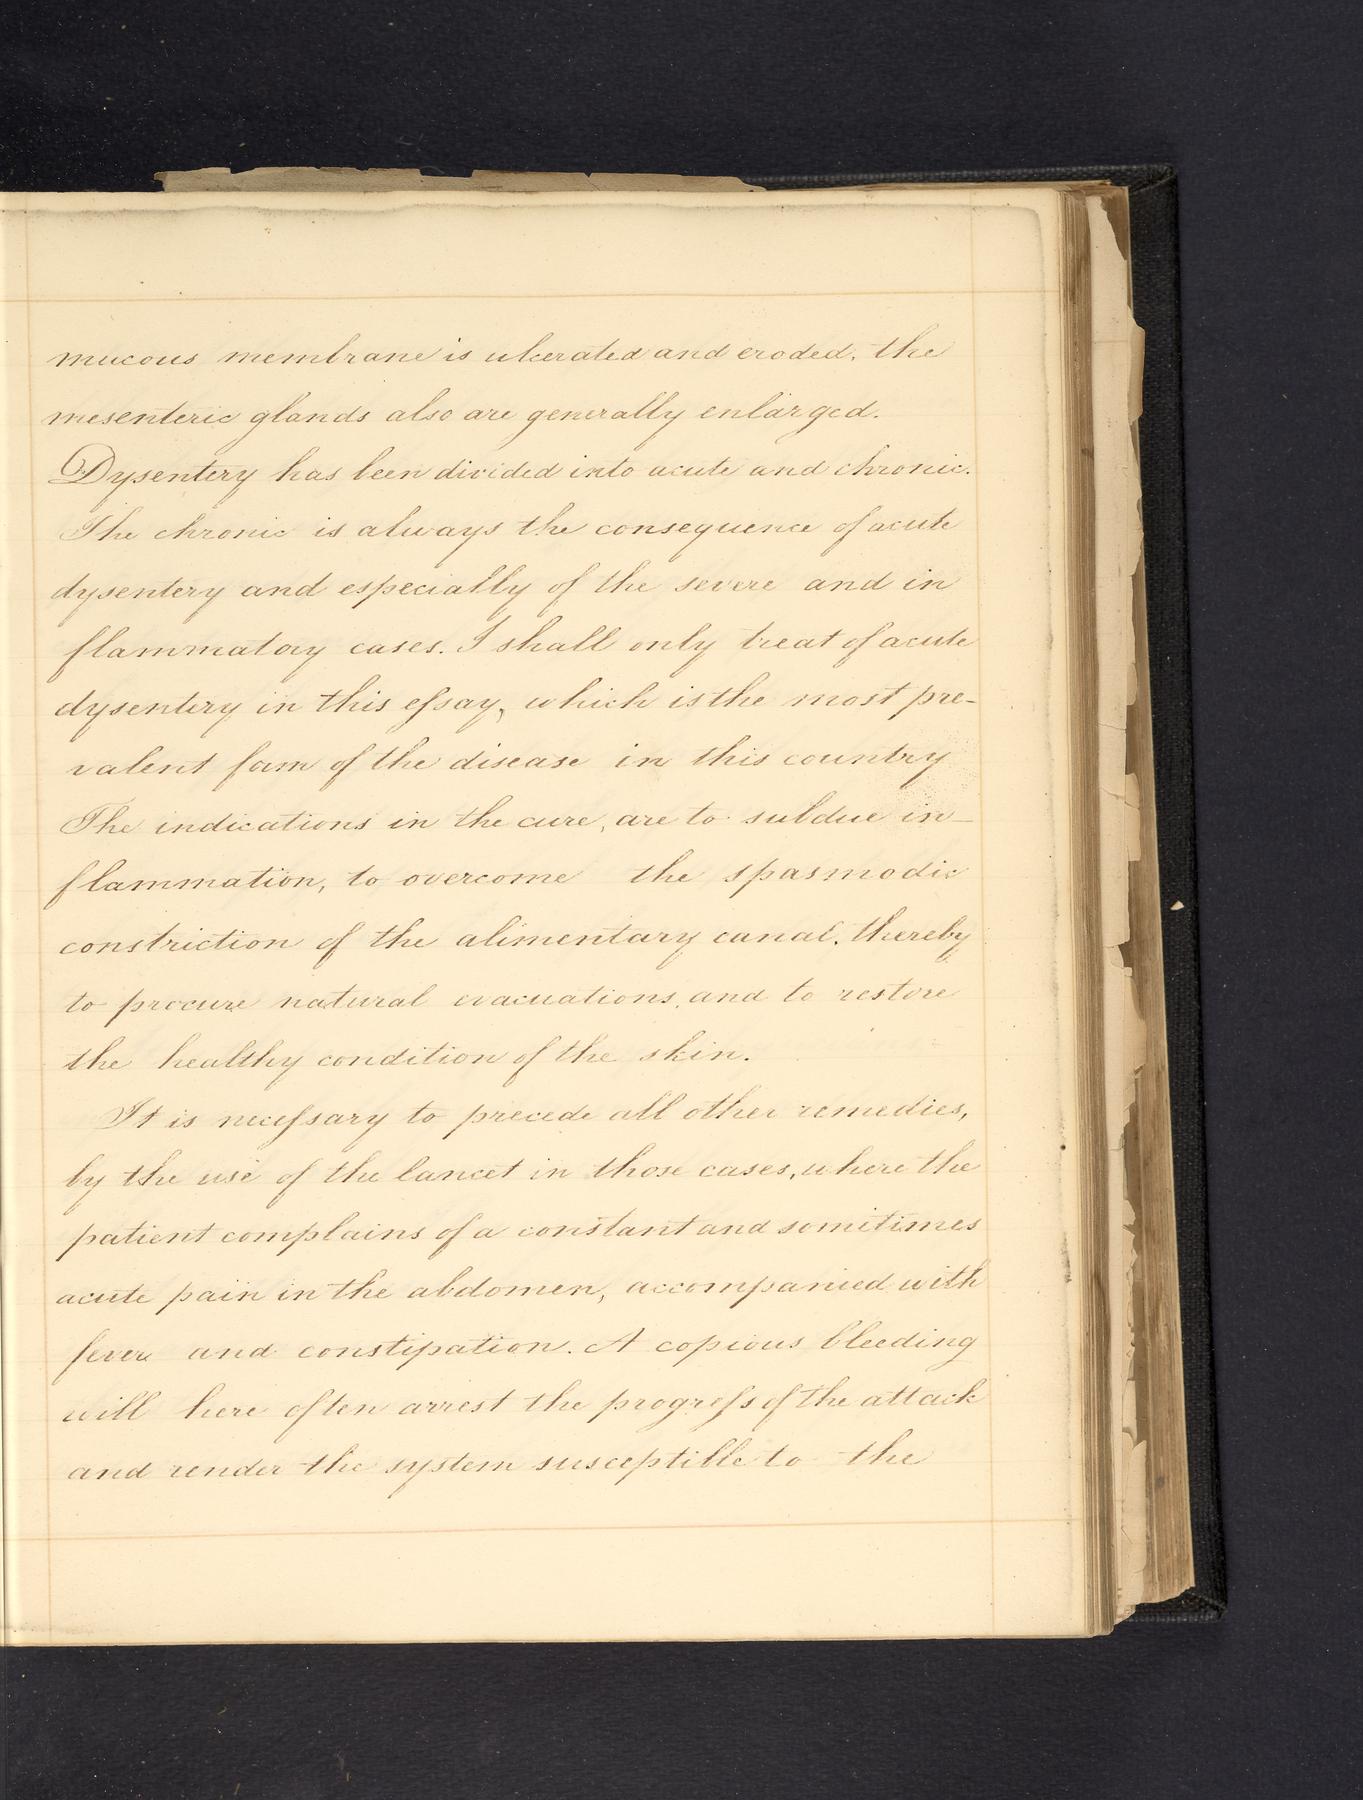 mucous membrane is ulcerated and eroded, the
mesenteric glands also are generally enlarged.
Dysentery has been divided into acute and chronic.
The chronic is always the consequence of acute
dysentery and especially of the severe and in
flammatory cases. I shall only treat of acute
dysentery in this eſsay, which is the most pre-
valent form of the disease in this country
The indications in the cure, are to subdue in-
flammation, to overcome the spasmodic
constriction of the alimentary canal, thereby
to procure natural evacuations, and to restore
the healthy condition of the skin.
It is neceſsary to precede all other remedies,
by the use of the lancet in those cases, where the
patient complains of a constant and somitimes
acute pain in the abdomen, accompanied with
fever and constipation. A copious bleeding
will here often arrest the progreſs of the attack
and render the system susceptible to the